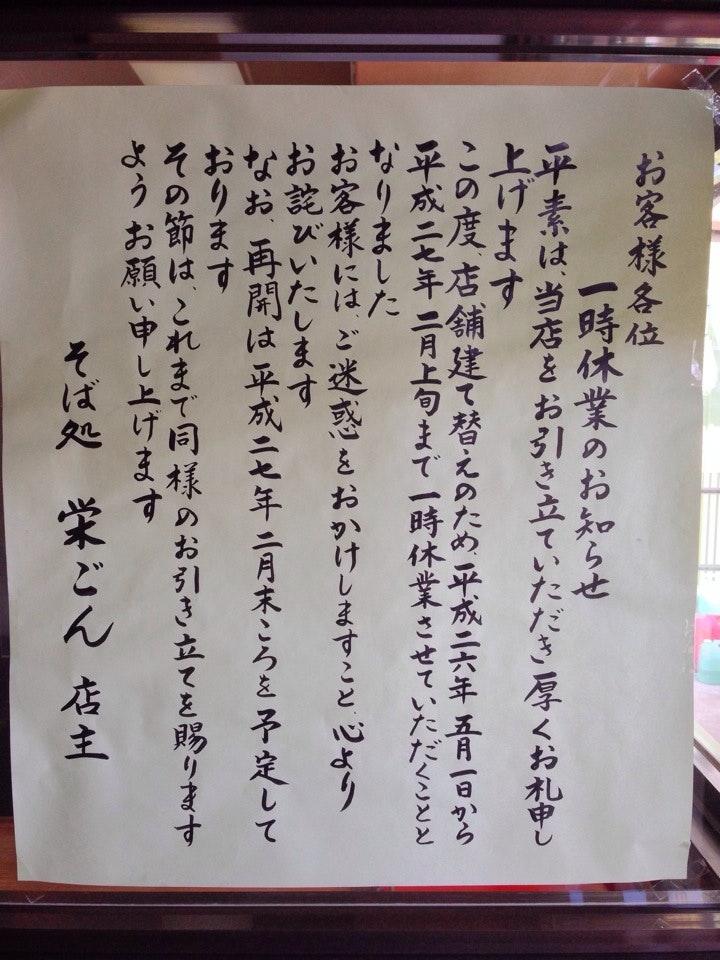 お客様各位
一時休業のお知らせ
平素は、当店をお引き立ていただき厚くお札申し
上げます
この度、店舗建て替えのため、平成二六年 五月一日から
平成二七年 二月上旬まで一時休業させていただくことと
なりました
お客様には、ご迷惑をおかけしますこと、心より
お詫びいたします
なお、再開は平成二七年 二月末ころを予定して
おります
その節は、これまで同様のお引き立てを賜ります
よう お願い申し上げます
そば処 栄ごん 店主